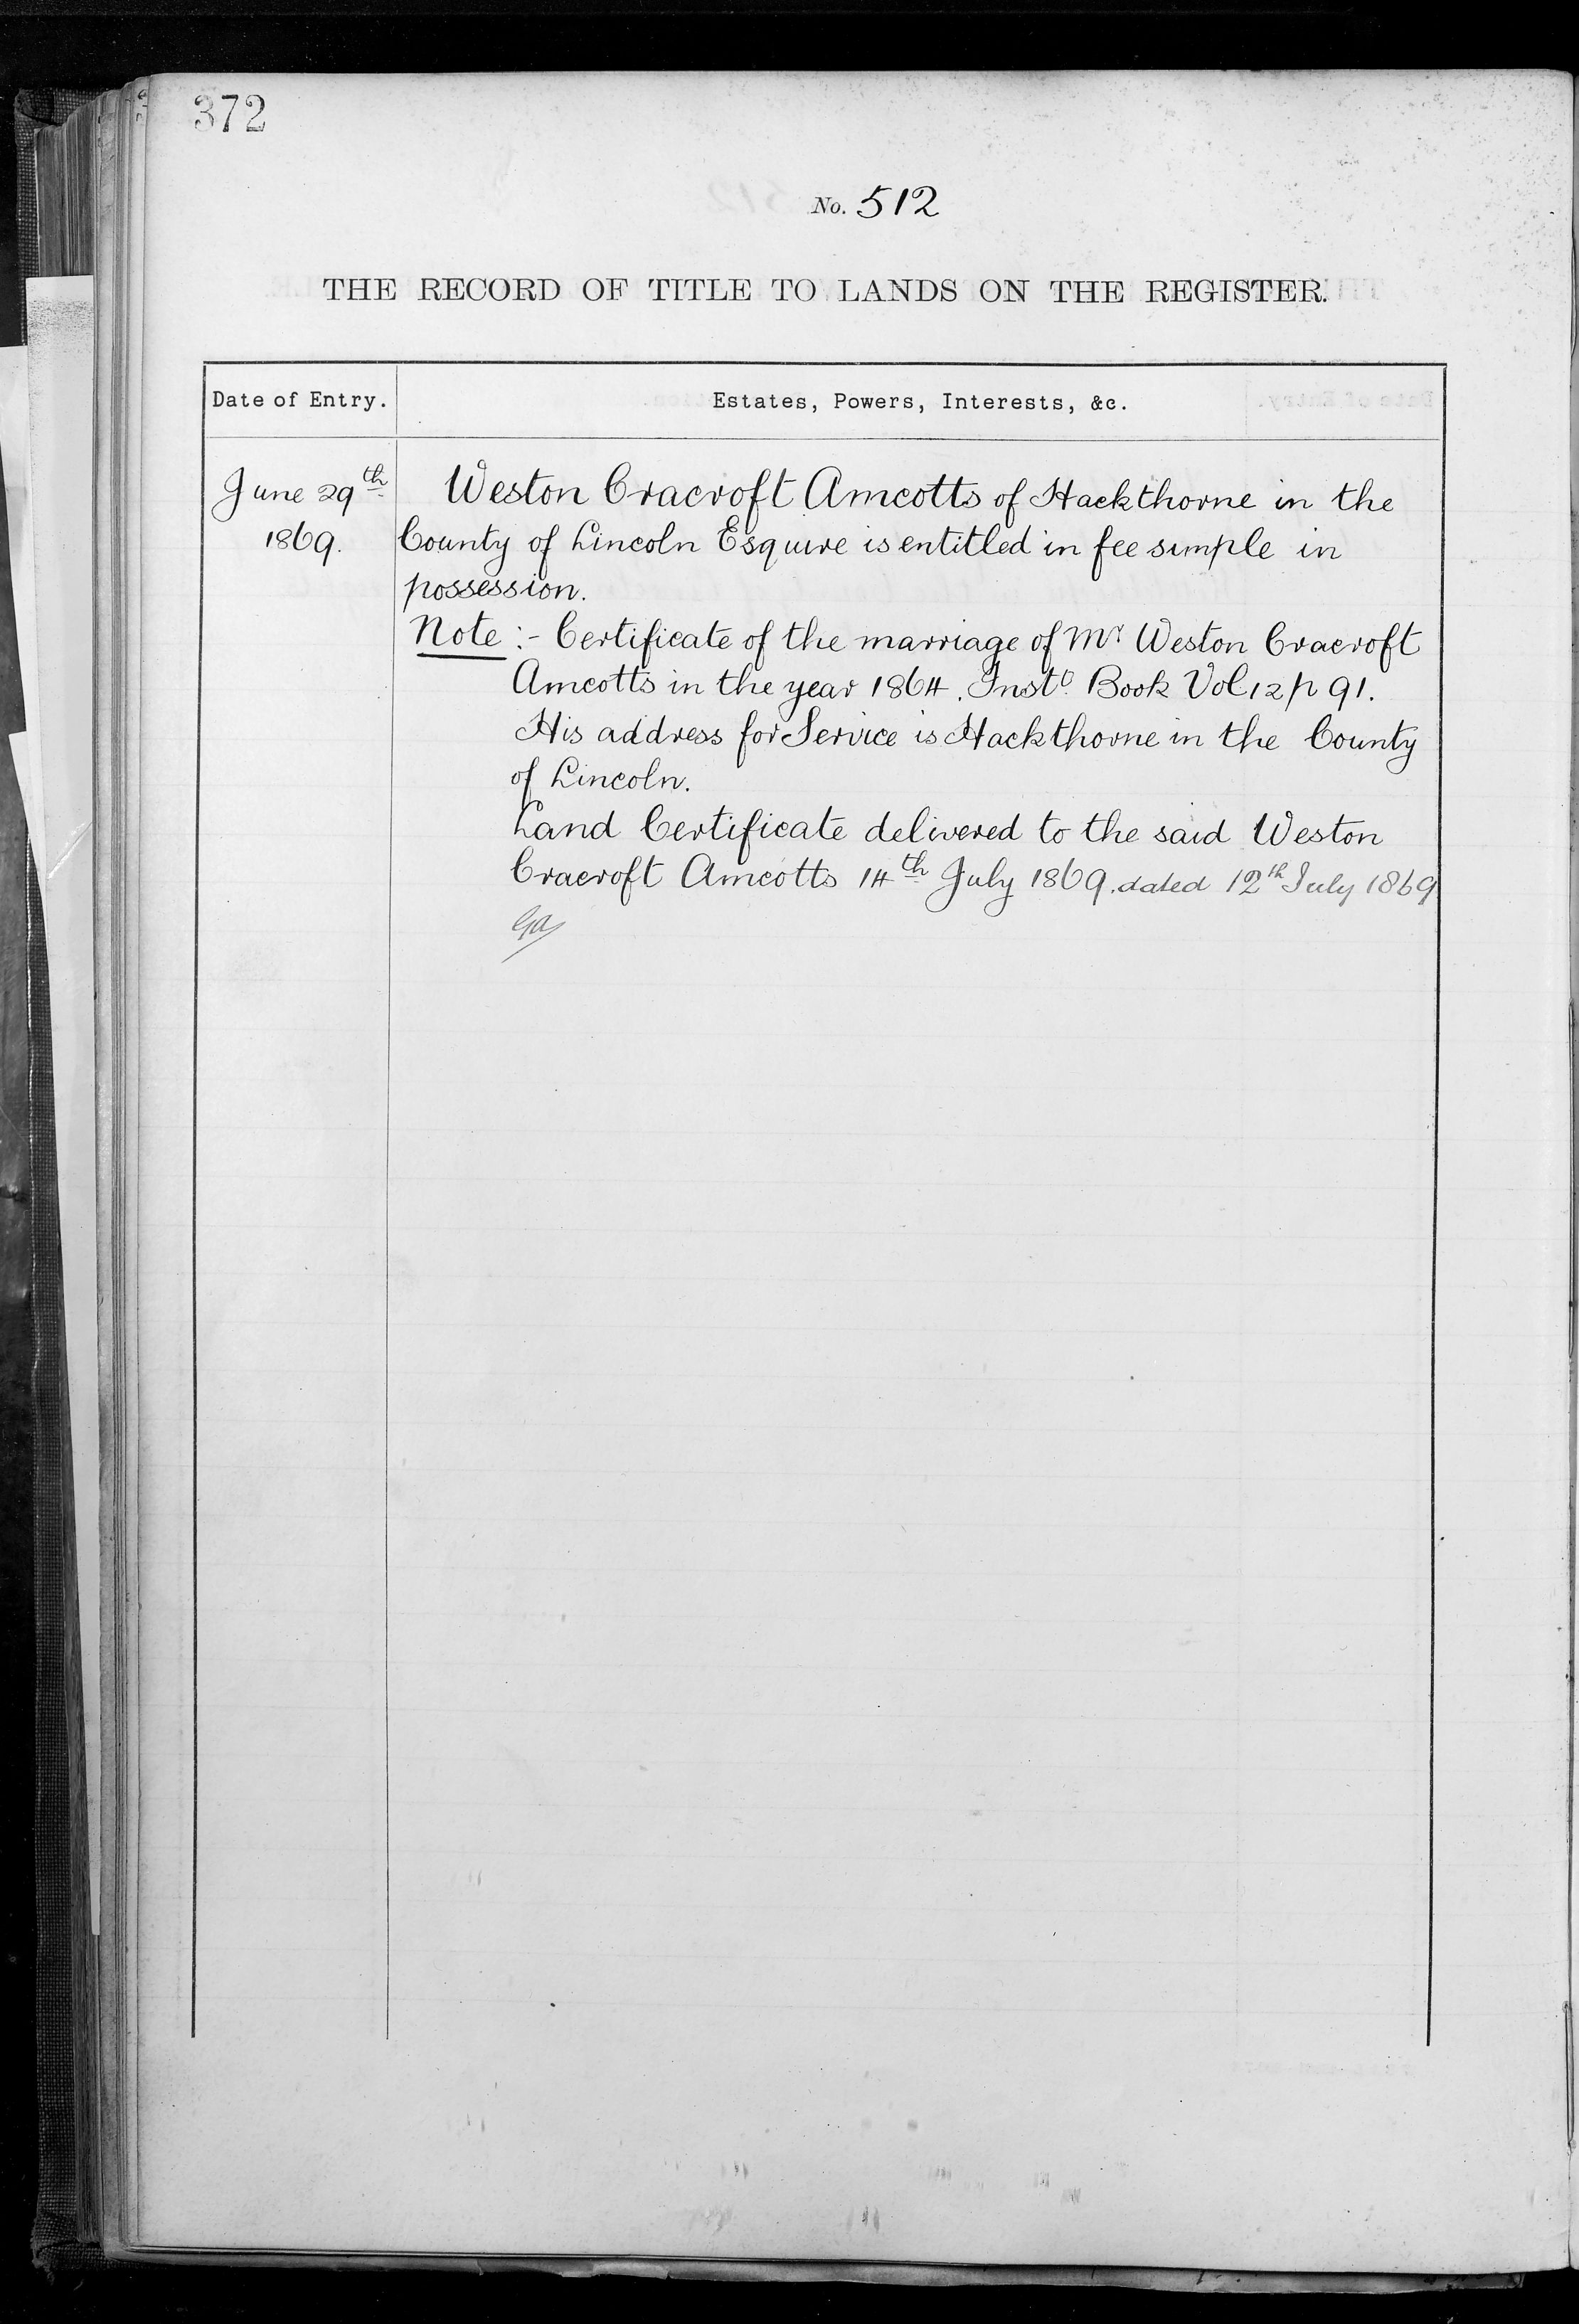 372
No. 512
THE RECORD OF TITLE TO LANDS ON THE REGISTER.
Date of Entry. Estates, Powers, Interests, &c.
June 29th 1869. Weston Cracroft Amcotts of Hackthorne in the
County of Lincoln Esquire is entitled in fee simple in
possession.
Note :- Certificate of the marriage of Mr Weston Cracroft
Amcotts in the year 1864. Insto. Book Vol 12 p 91.
His address for Service is Hackthorne in the County
of Lincoln.
Land Certificate delivered to the said Weston
Cracroft Amcotts 14th July 1869. dated 12th July 1869